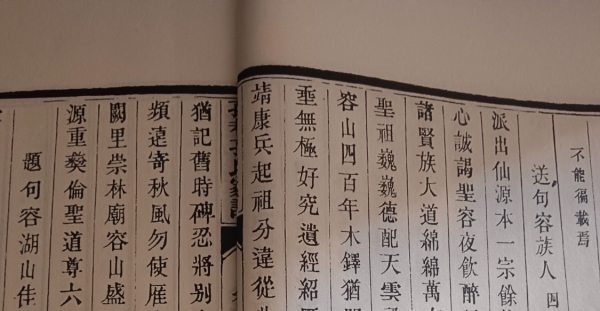 不能徧載焉
送句容族人 四
派出仙源本一宗餘
心誠謁聖容夜飲醉
諸賢族大道綿綿萬
聖祖巍巍德配天雲
容山四百年木鐸猶
垂無極好究遺經紹
靖康兵起祖分違從
猶記舊時碑忍將別
頻遠寄秋風勿使雁
闕里崇林廟容山盛
源重彝倫聖道尊六
題句容湖山佳